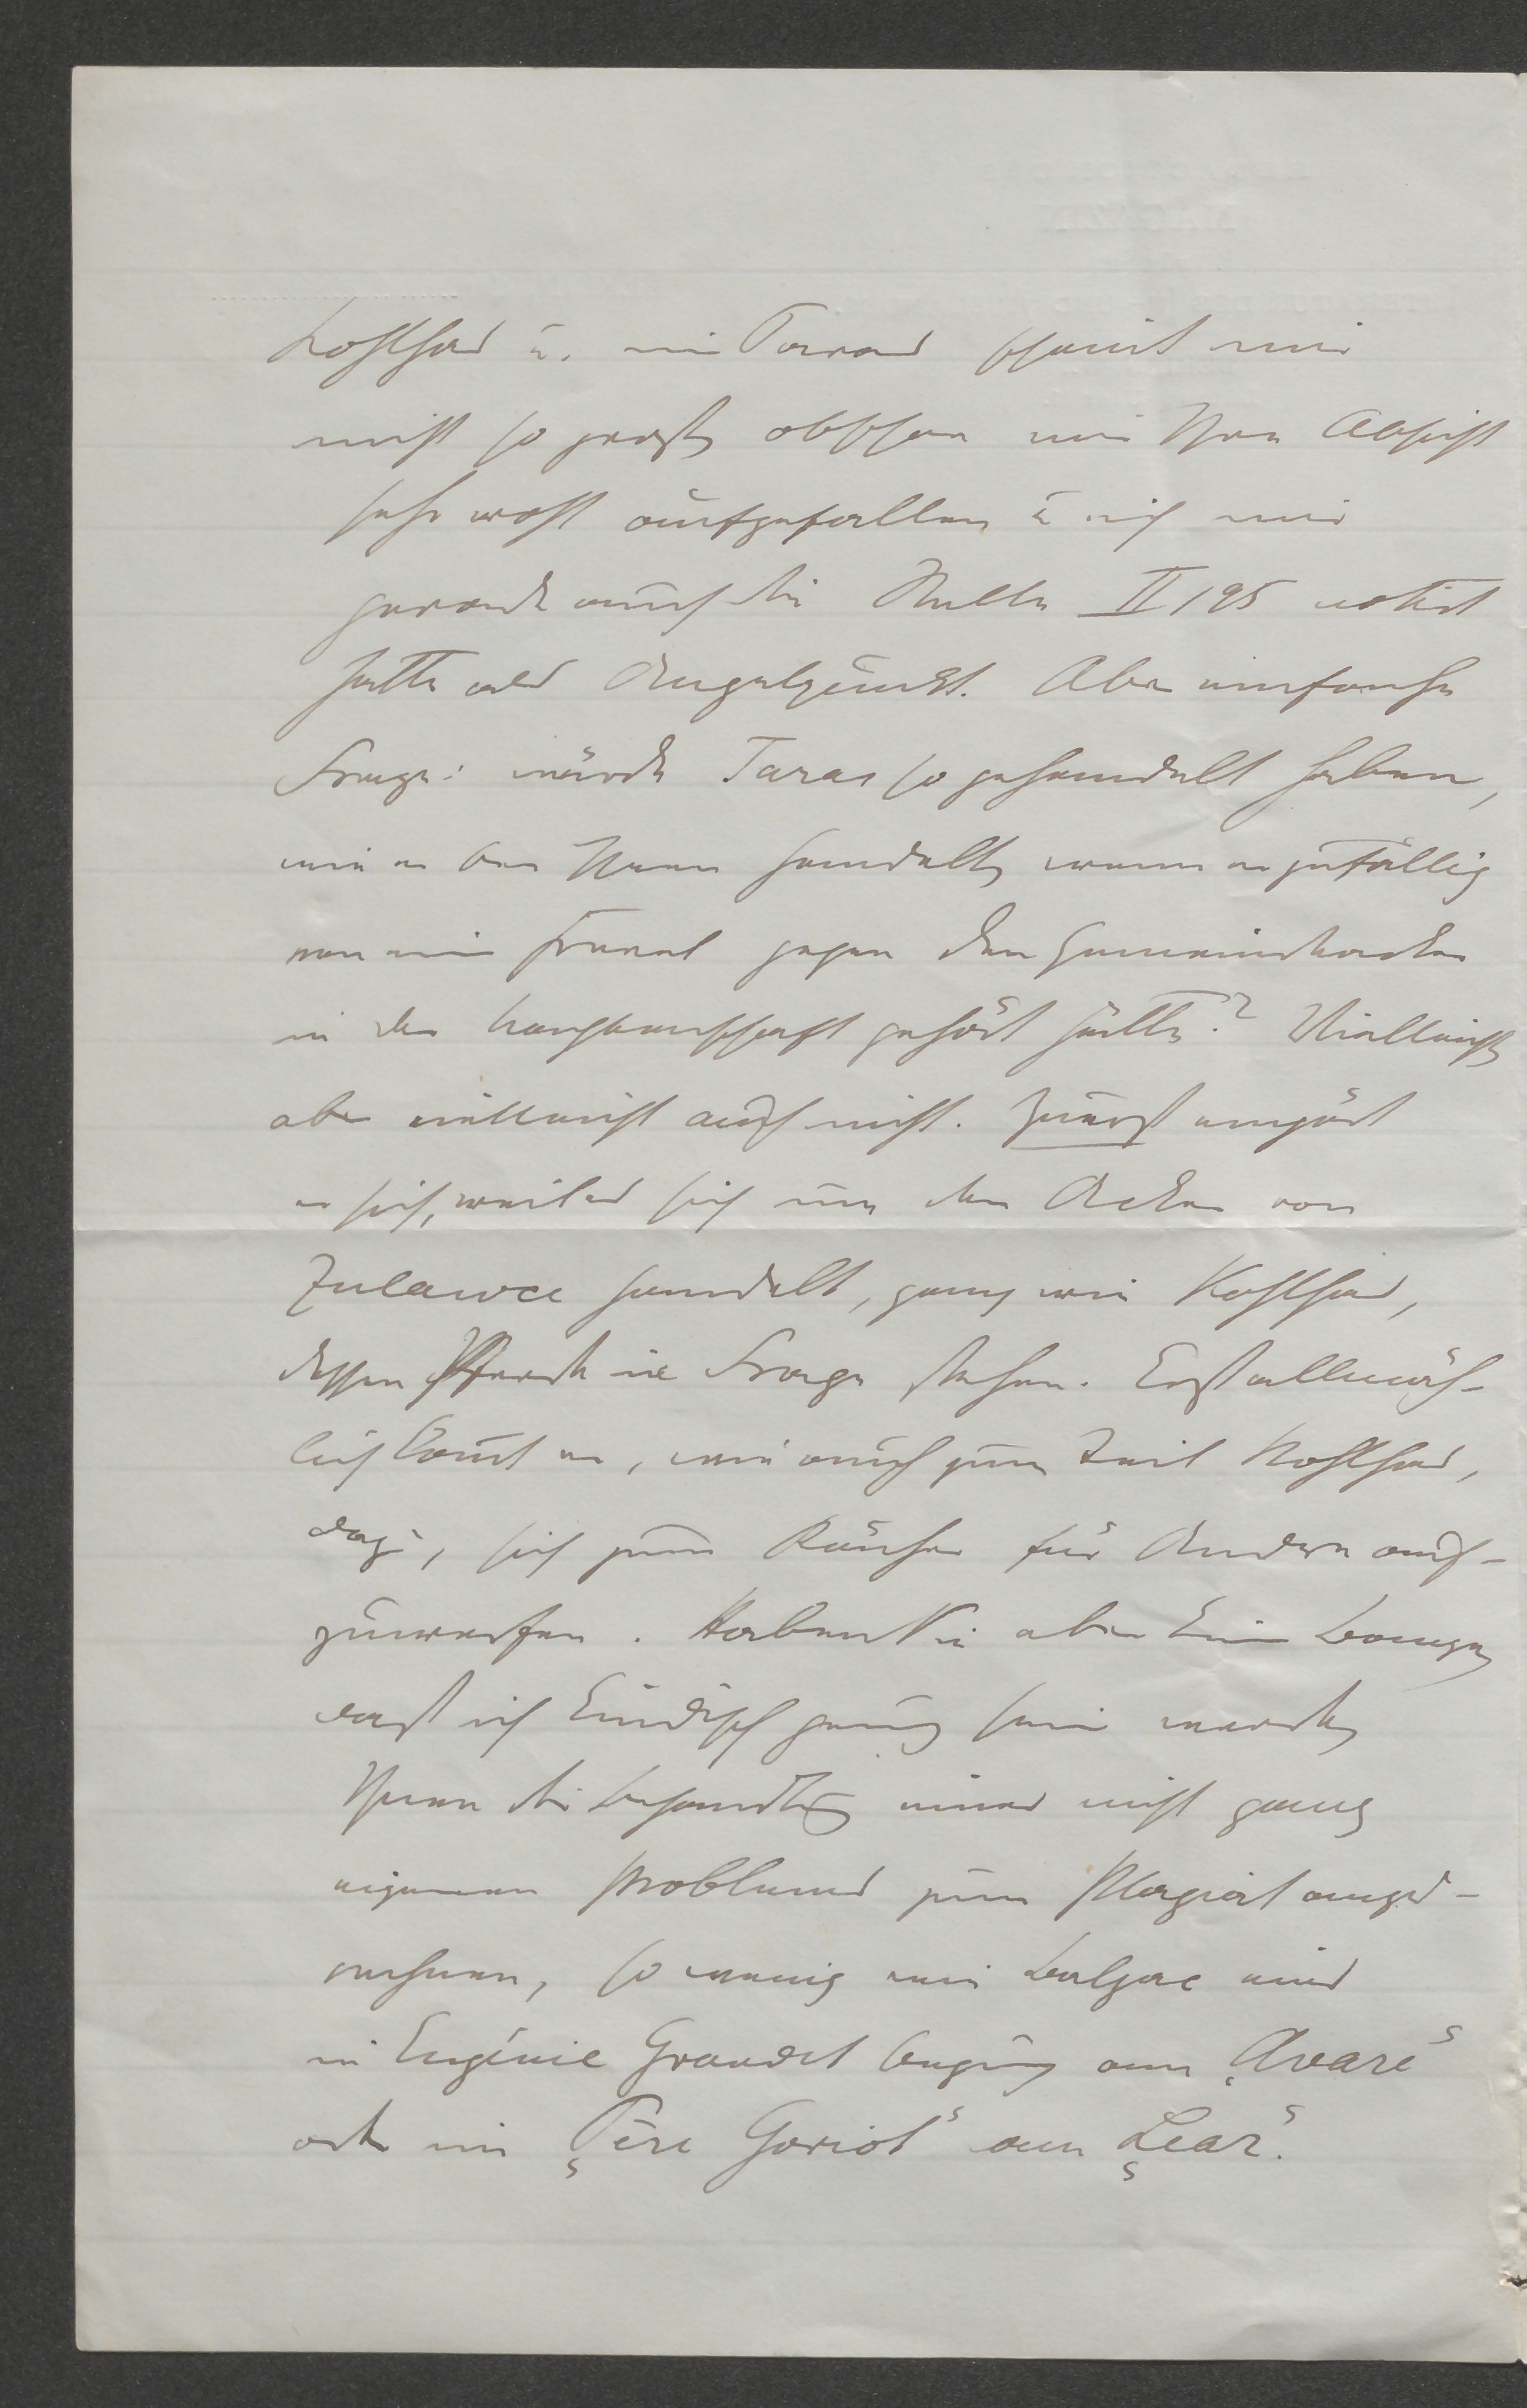 Kohlhas u. im Taras scheint mir
nicht so groß, obschon mir Ihre Absicht
sehr wohl aufgefallen u ich mir
gerade auch die Stelle II 195 notirt
hatte als Angelpunkt. Aber einfache
Frage: würde Taras so gehandelt haben,
wie er bei Ihnen handelt, wenn er zufällig
von ein Frevel gegen den Gemeindeacker
in der Nachbarschaft gehört hätte? Vielleicht,
aber vielleicht auch nicht. Zuerst empört
er sich, weil es sich um den Acker von
Zulawce handelt, ganz wie Kohlhas,
dessen Pferde in Frage stehen. Erst allmäh-
lich kommt er, wie auch zum Teil Kohlhas,
dazu, sich zum Rächer für Andere auf-
zuwerfen. Haben Sie aber keine Bange,
daß ich kindisch genug sein werde,
Ihnen die Behandlung eines nicht ganz
eigenen Problems zum Plagiat anzu-
rechnen, so wenig wie Balzac eins
in Eugénie Grandet beging am „Avare“
oder im „Père Goriot“ am „Lear“.